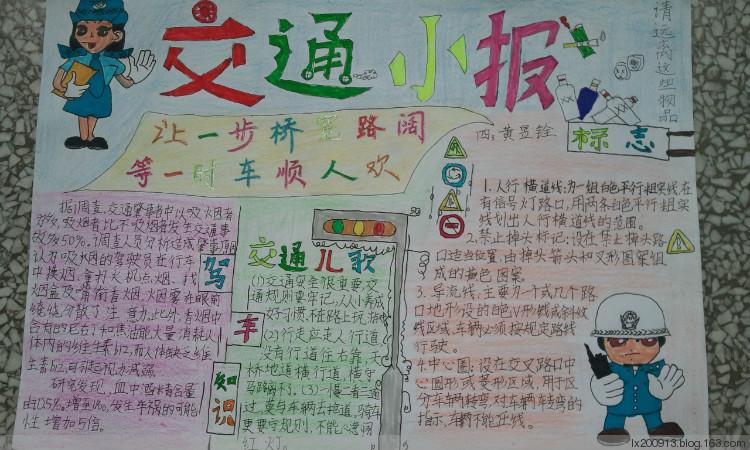 交通小报
请远离这些物品
让一步桥宽路阔
等一时车顺人欢
四:黄昱铨
标志
据调查,交通肇事者中以吸烟者
多,吸烟者比不吸烟者发生交通事
故多50%。调查人员分析造成肇事原因
认为吸烟的驾驶员在行车
中摸烟、拿打火机点烟、找
烟盒及嘴衔着烟,烟雾在眼前
绕,分散了
量消耗人
体内的维生素b12,而人体缺乏维
生素b12,可引起视力减弱。
研究发现,血中酒精含量
由0.5%。增至1%。发生车祸的可能
性增加5倍。
驾
车
知识
交通儿歌
(1)交通安全很重要,交
通规则要牢记,从小养成
好习惯,不在路上玩游戏
(2)行走应走人行道,
没有行道往右靠,天
桥地道横行道,横穿
马路离不了。(3)一慢二看三通
过,莫与车辆去抢道,骑车
更要守规则,不能心急闯
红灯。
1.人行横道线:为一组白色平行粗实线在
有信号灯路口,用两条白色平行粗实
线划出人行横道线的范围。
2.禁止掉头标记:设在禁止掉头路
口适当位置,由掉头箭头和叉形图案组
成的黄色图案。
3.导流线:主要为一个或几个路
口地形设的白色V形线或斜纹
线区域,车辆必须按规定路线
行驶。
4.中心圈:设在交叉路口中
心圆形或菱形区域,用于区
分车辆转弯,对车辆车转弯的
指示,车辆不能在线。
lx200913.blog.163.com